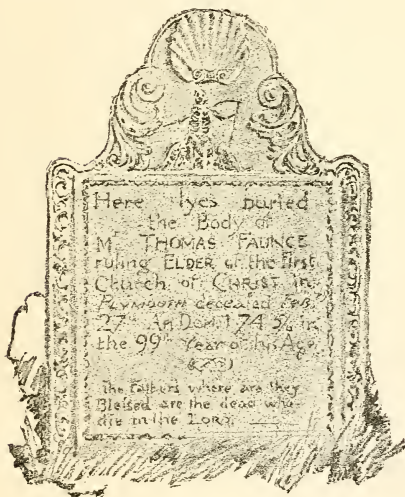 Here lyes buried
the Body of
Mr THOMAS FAUNCE
ruling ELDER of the First
Church of CHRIST in
PLYMOUTH deceased Feby
27th An Dom. 174 5/6 in
the 99th Year of his Age
The Fathers where are they
Blessed are the dead who
die in the LORD.